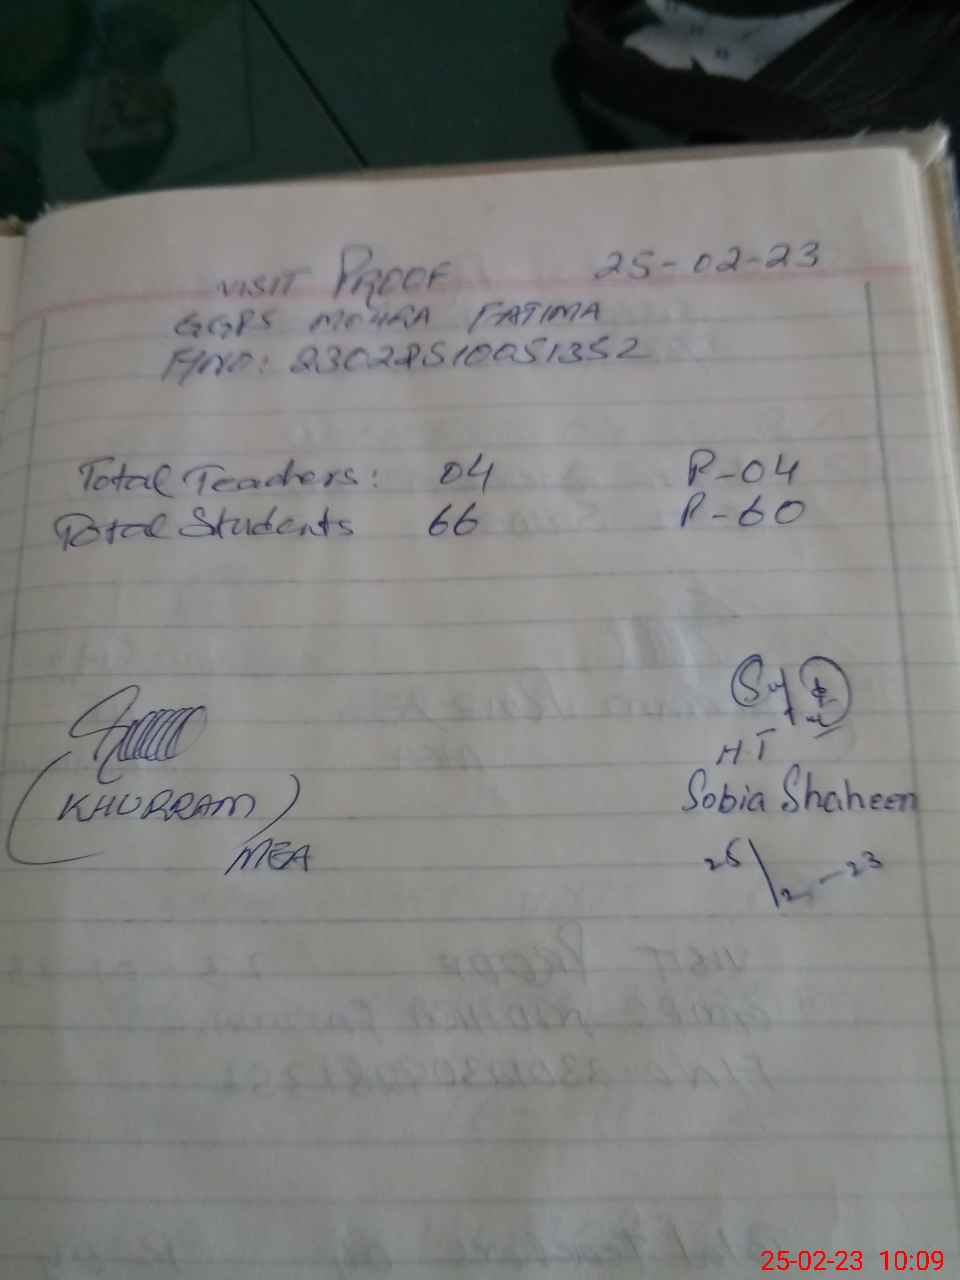 VISIT PROOF 25-02-23
GGPS MOHRA FATIMA
F/NO: 23022510051352
Total Teachers: 04 P-04
Total Students 66 P-60
H.T
(KHURRAM) Sobia Shaheen
MEA 25/2-23
25-02-23 10:09